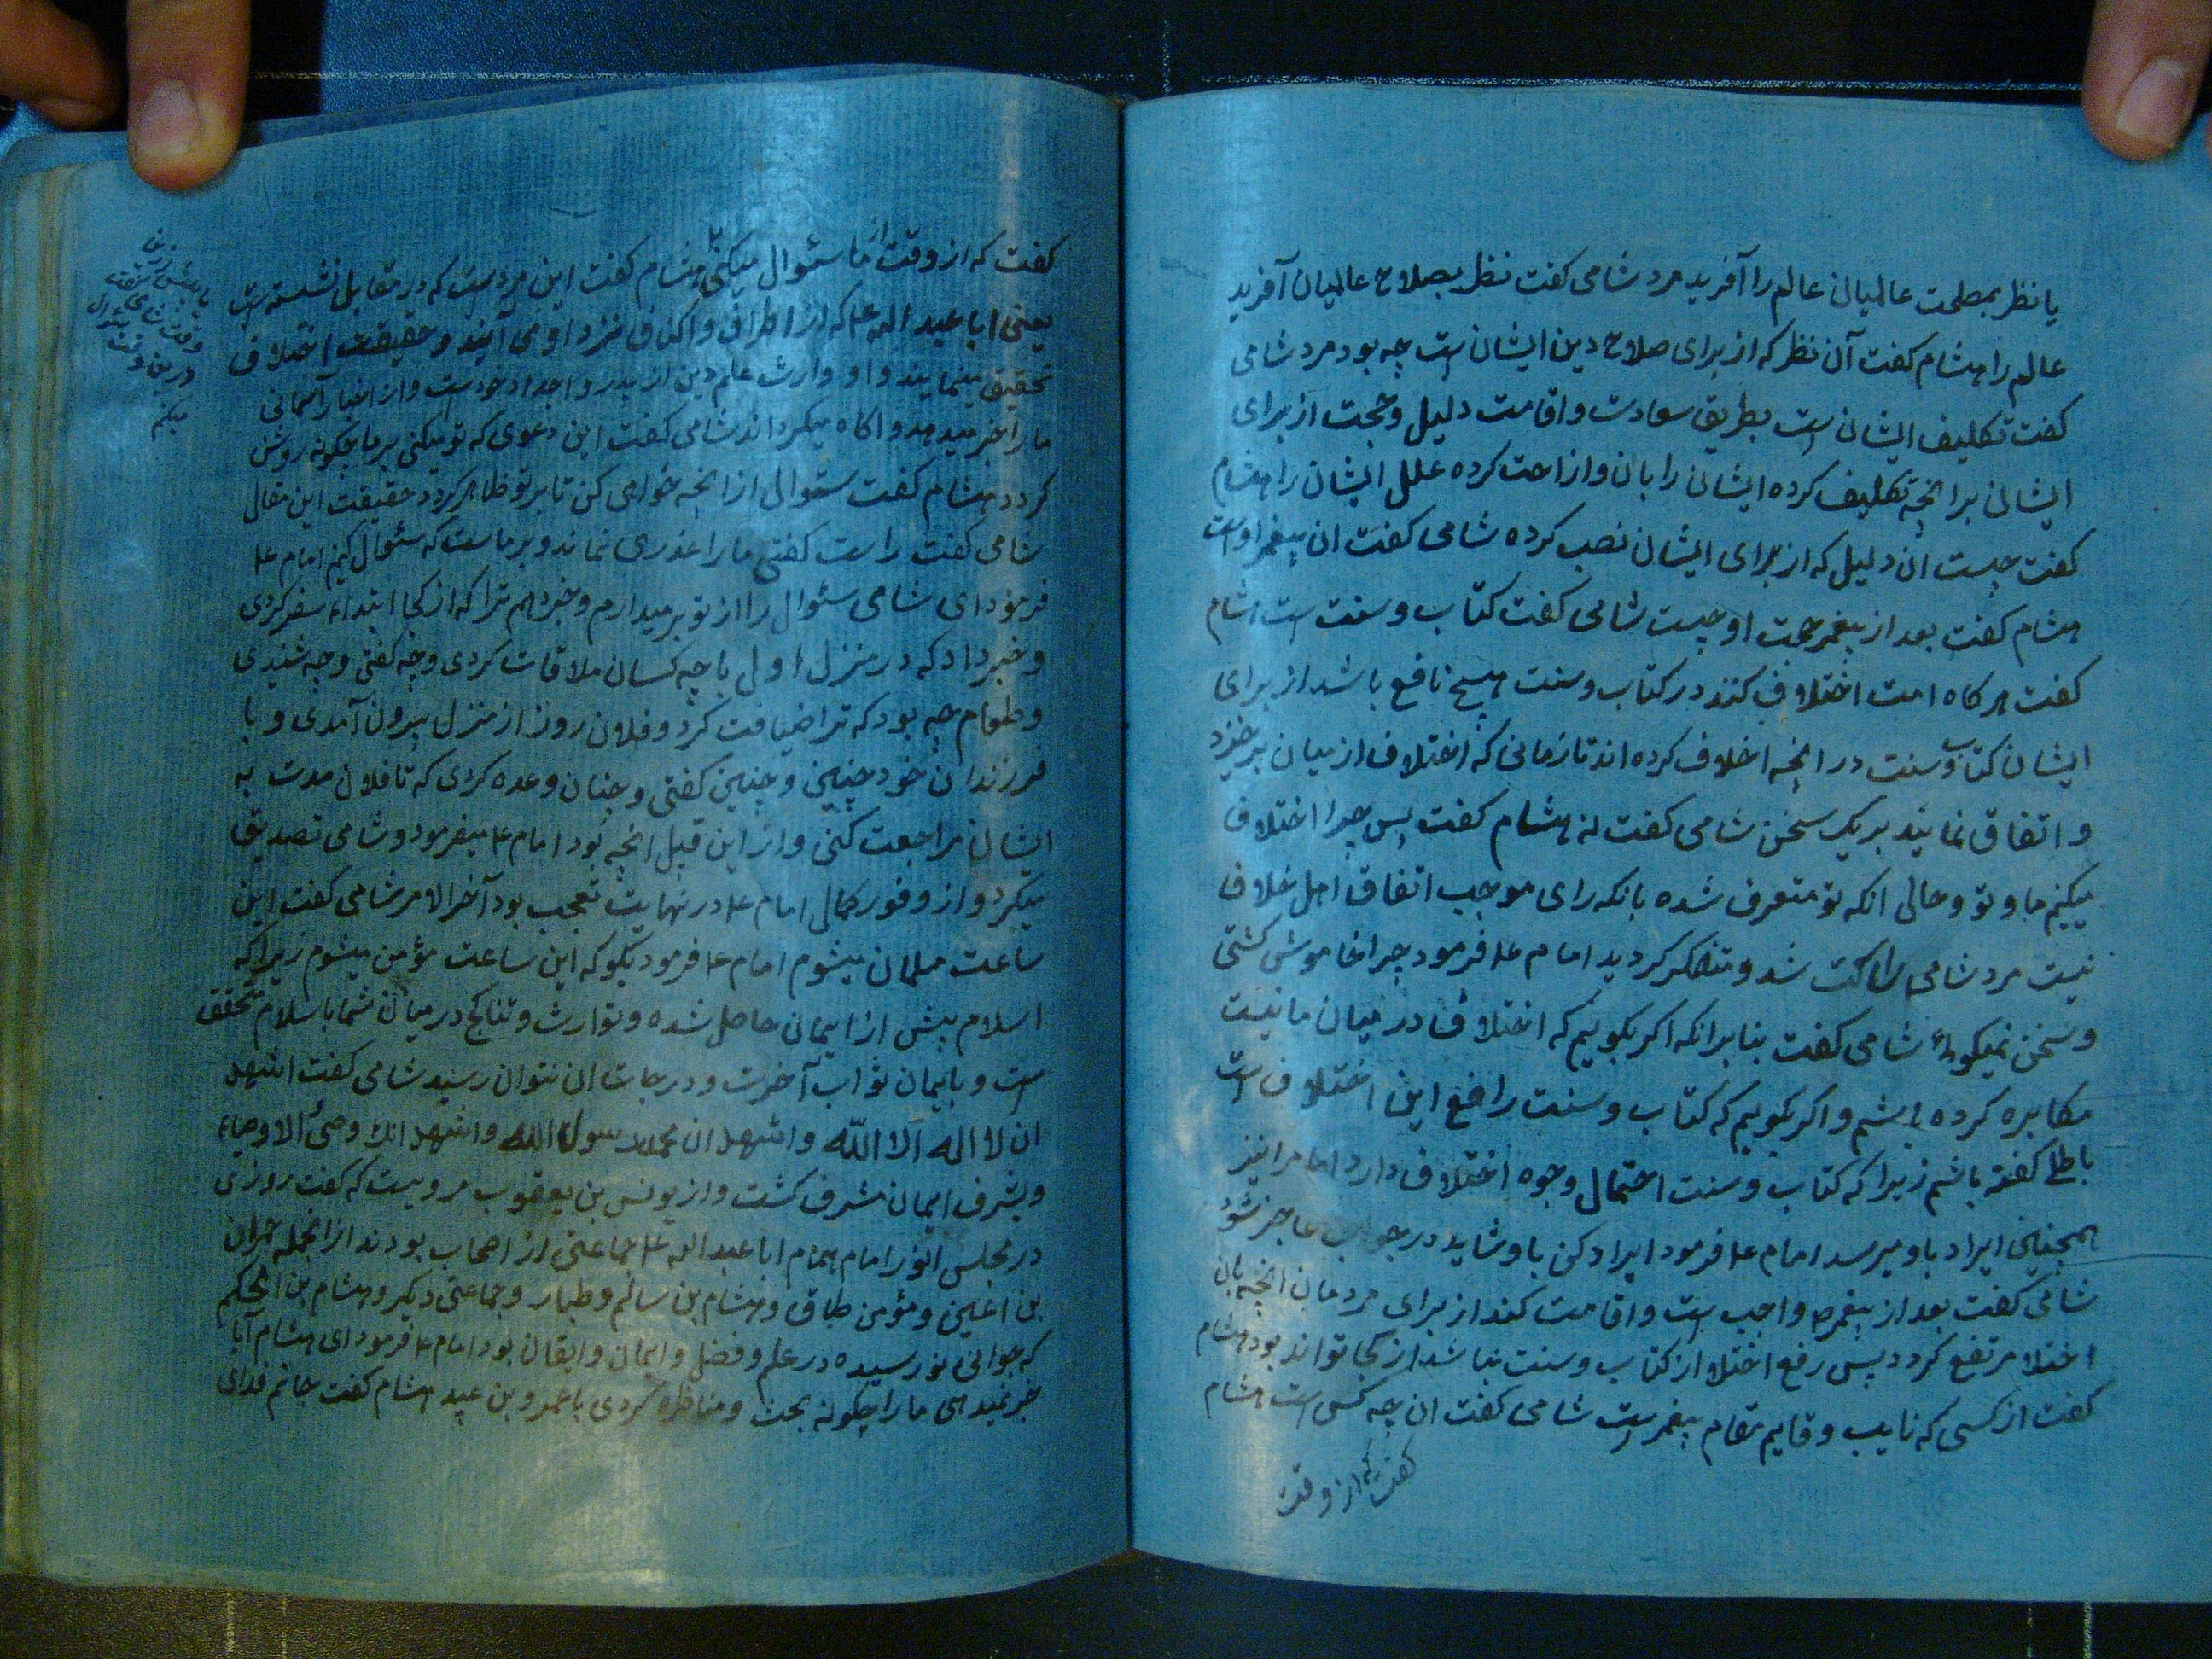 یا نظر بمصلحت عالمیان عالم را آفرید مرد شامی کفت نظر بصلاح عالمیان آفرید
عالم را هشام کفت آن نظر که از برای صلاح دین ایشان است چه بود مرد شامی
کفت تکلیف ایشان است بطریق سعادت و اقامت دلیل و حجت از برای
ایشان بر انچه تکلیف کرده ایشان را بان و ازاحت کرده علل ایشان را هشام
کفت چیست ان دلیل که از برای ایشان نصب کرده شامی کفت ان پیغمبر اوست
هشام کفت بعد از پیغمبر حجت او چیست شامی کفت کتاب و سنت است هشام
کفت هر کاه امت اختلاف کنند در کتاب و سنت هیچ نافع باشد از برای
ایشان کتاب و سنت در انچه اخلاف کرده اند تا زمانی که اختلاف از میان بر خیزد
و اتفاق نمایند بر یک سخن شامی کفت نه هشام کفت پس چرا اختلاف
میکنیم ما و تو و حال انکه تو متعرف شده بانکه رای موجب اتفاق اهل خلاف
نیست مرد شامی ساکت شد و متفکر کردید امام ع فرمود چرا خاموش کشتی
و سخن نمیکوئی شامی کفت بنا بر انکه اکر بکویم که اختلاف در میان ما نیست
مکابره کرده باشم و اکر بکویم که کتاب و سنت رافع این اختلاف است
باطل کفته باشم زیرا که کتاب و سنت احتمال وجوه اختلاف دارد اما مرا نیز
همچنین ایراد باو میرسد امام ع فرمود ایراد کن باو شاید در جواب عاجز شود
شامی کفت بعد از پیغمبر ص واجب است و اقامت کند از برای مردمان انچه بان
اختلا مرتفع کردد پس رفع اختلا از کتاب و سنت نباشد از کجا تواند بود هشام
کفت از کسی که نایب و قایم مقام پیغمبر است شامی کفت ان چه کسی است هشام
کفت که از وقت
کفت که از وقت از ما سئوال میکنی هشام کفت این مرد است که در مقابل نشسته است
یعنی ابا عبد الله ع که از اطراف و اکناف نزد او می آیند و حقیقت اختلاف
تحقیق مینمایند و او وارث علم دین از پدر و اجداد خود است و از اخبار آسمانی
ما را خبر میدهد و اکاه میکرداند شامی کفت این دعوی که تو میکنی بر ما چکونه روشن
کردد هشام کفت سئوال از انچه خواهی کن تا بر تو ظاهر کردد حقیقت این مقال
شامی کفت راست کفتی ما را عذری نماند و بر ماست که سئوال کنیم امام ع
فرمود ای شامی سئوال را از تو بر میدارم و خبر دهم ترا که از کجا ابتداء سفر کردی
و خبر داد که در منزل اول با چه کسان ملاقات کردی و چه کفتی و چه شنیدی
و طعام چه بود که ترا ضیافت کرد و فلان روز از منزل بیرون آمدی و با
فرزندان خود چنین و چنین کفتی و چنان وعده کردی که تا فلان مدت به
ایشان مراجعت کنی و از این قبل انچه بود امام ع میفرمود و شامی تصدیق
میکرد و از وفور کمال امام ع در نهایت تعجب بود آخر الامر شامی کفت این
ساعت مسلمان میشوم امام ع فرمود بکو که این ساعت مؤمن میشوم زیرا که
اسلام پیش از ایمان حاصل شده و توارث و تناکح در میان شما باسلام متحقق
است و بایمان ثواب آخرت و درجات ان نتوان رسید شامی کفت اشهد
ان لا اله الا الله و اشهد ان محمد رسول الله و اشهد انک وصی الاوصیاء
و بشرف ایمان مشرف کشت و از یونس بن یعقوب مرویست که کفت روزی
در مجلس انور امام همام ابا عبد الله ع جماعتی از اصحاب بودند از انجمله حمران
بن اعین و مؤمن طاق و هشام بن سالم و طیار و جماعتی دیکر و هشام بن الحکم
که جوانی نو رسیده در علم و فضل و ایمان و ایقان بود امام ع فرمود ای هشام آیا
خبر نمیدهی ما را چکونه بحث و مناظره کردی با عمرو بن عبید هشام کفت جانم فدای
یا پیش ازین
وقت شامی کفت
درین وقت سئوال
میکنم